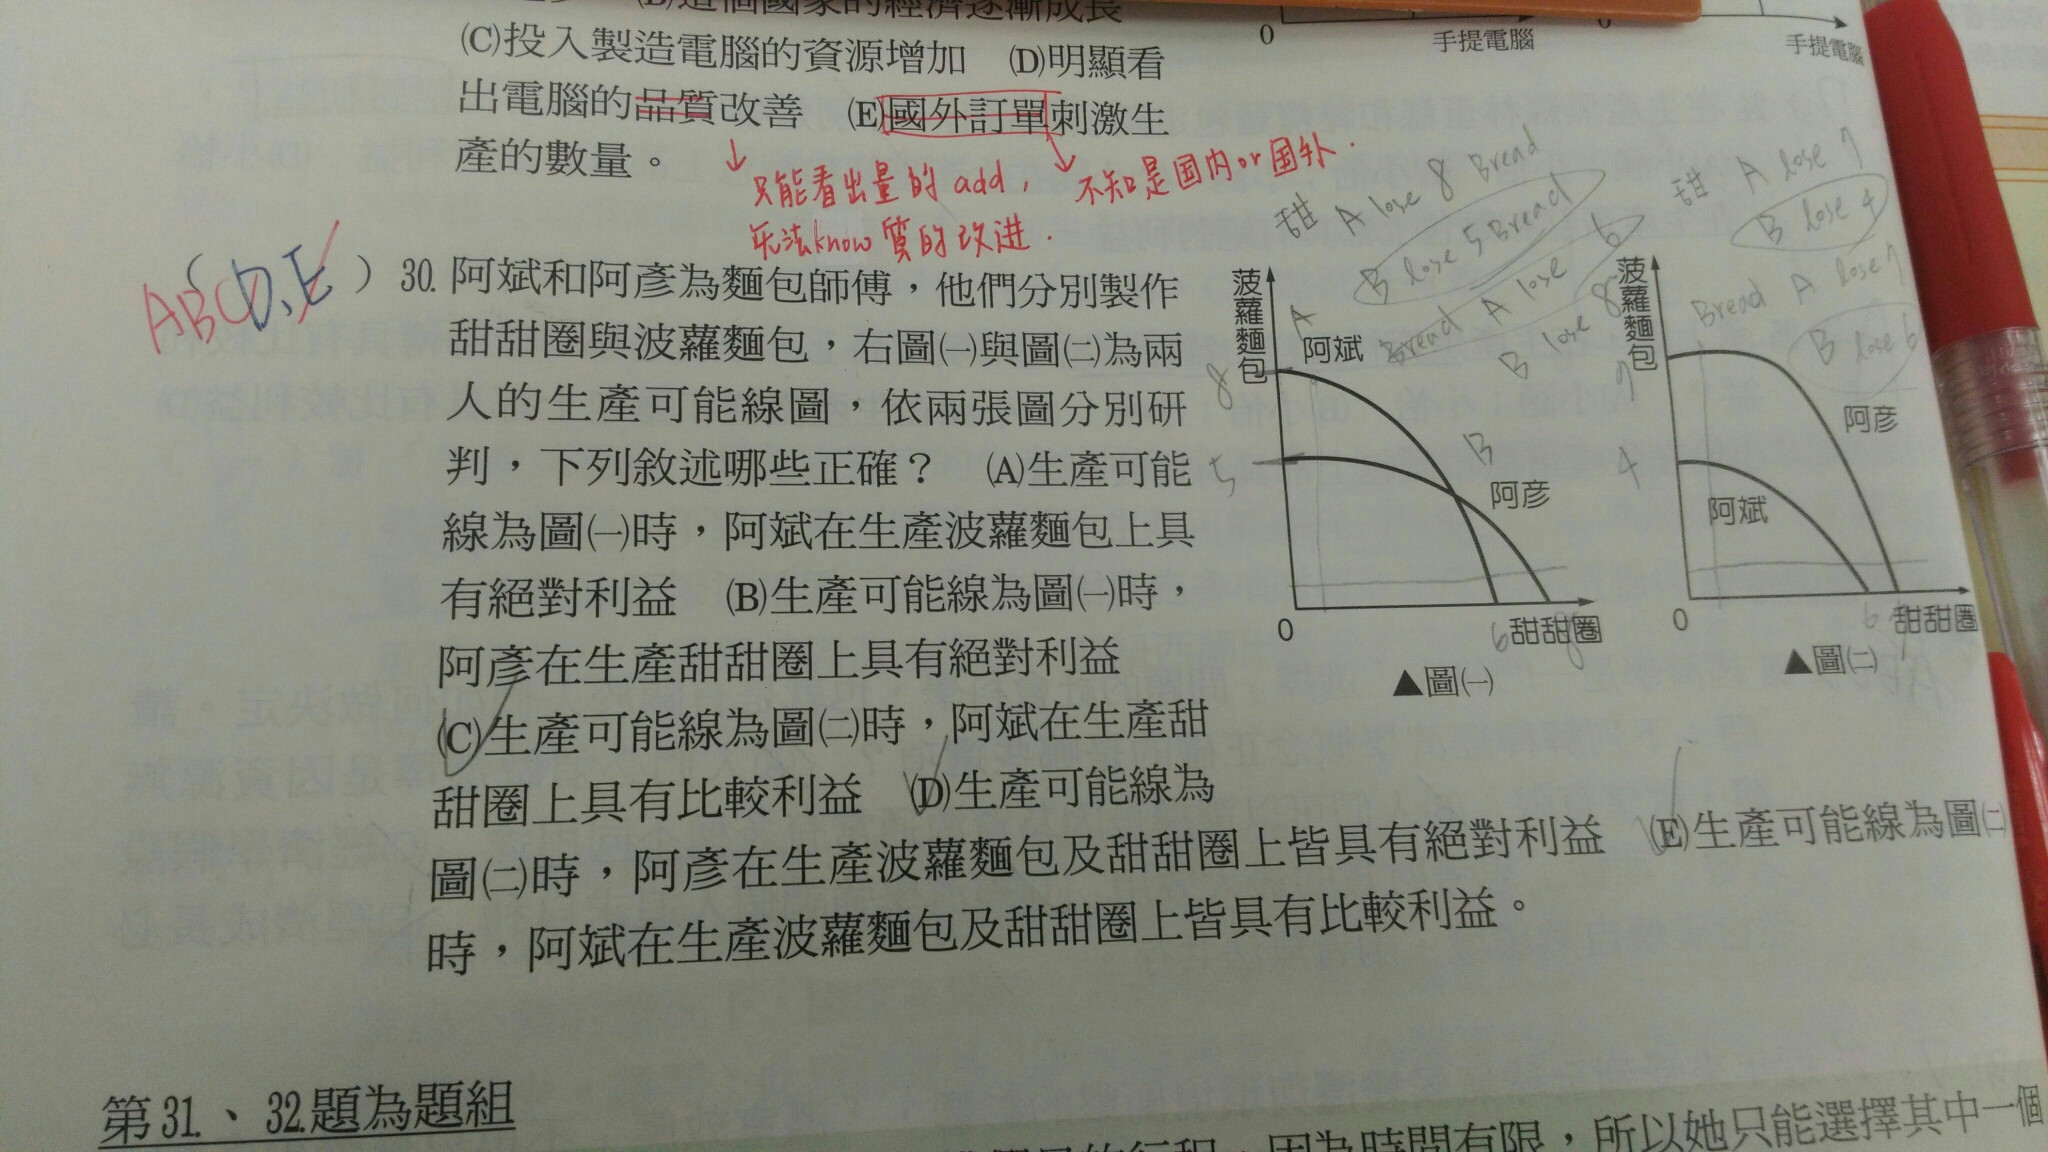 (B)這個國家的經濟逐漸成長
(C)投入製造電腦的資源增加 (D)明顯看
出電腦的品質改善 (E)國外訂單刺激生
產的數量。
只能看出量的 add,
无法know 質的改进.
不知是国内or国外.
0
手提電腦
0
手提電腦
甜 A lose 8 Bread
B lose 5 Bread
Bread A lose 6
B lose 8
甜 A lose 7
B lose 4
Bread A lose 7
B lose 6
ABCD,E
( ) 30. 阿斌和阿彥為麵包師傅,他們分別製作
甜甜圈與波蘿麵包,右圖㈠與圖㈡為兩
人的生產可能線圖,依兩張圖分別研
判,下列敘述哪些正確? (A)生產可能
線為圖㈠時,阿斌在生產波蘿麵包上具
有絕對利益 (B)生產可能線為圖㈠時,
阿彥在生產甜甜圈上具有絕對利益
(C)生產可能線為圖㈡時,阿斌在生產甜
甜圈上具有比較利益 (D)生產可能線為
圖㈡時,阿彥在生產波蘿麵包及甜甜圈上皆具有絕對利益 (E)生產可能線為圖㈡
時,阿斌在生產波蘿麵包及甜甜圈上皆具有比較利益。
菠蘿麵包
A
阿斌
8
B
阿彥
5
0
6
甜甜圈
8
▲圖㈠
菠蘿麵包
7
阿彥
4
阿斌
0
6
7
甜甜圈
▲圖㈡
第31.、32.題為題組
因為時間有限,所以她只能選擇其中一個